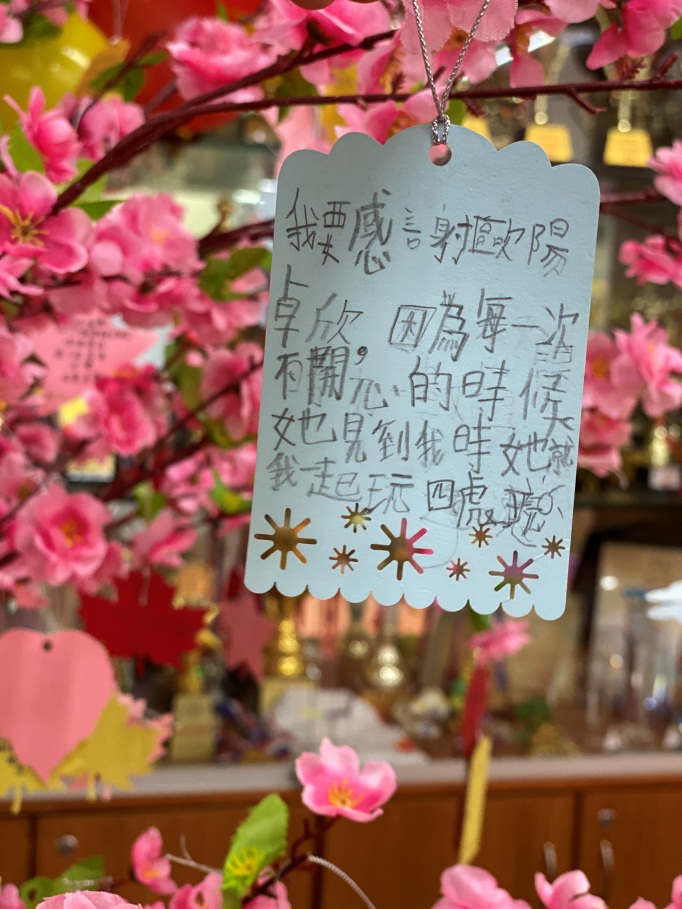 我要感謝歐陽
卓欣，因為每一次
有開心的時候
她見到我時她就
我一起玩四處